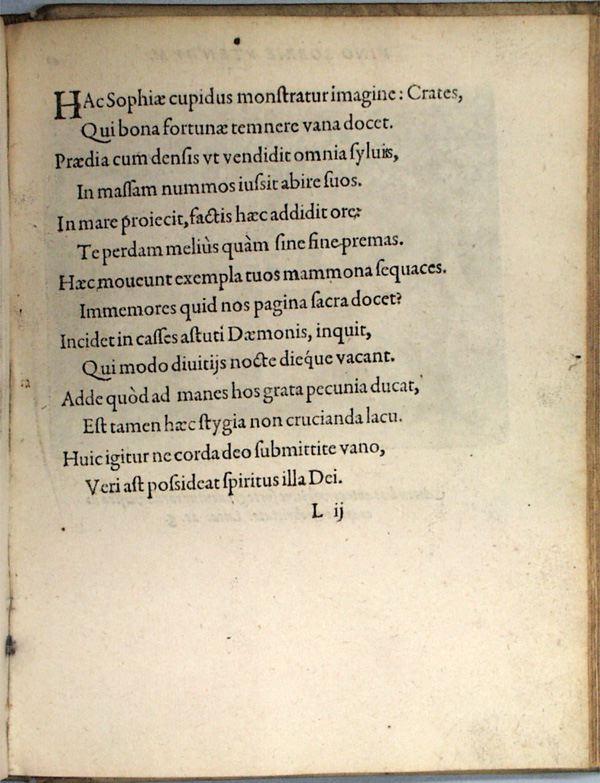 HAc Sophiæ cupidus monſtratur imagine: Crates,
Qui bona fortunæ temnere vana docet.
Prædia cum denſis vt vendidit omnia ſyluis,
In maſſam nummos iuſſit abire ſuos.
In mare proiecit, factis hæc addidit ore:
Te perdam meliùs quàm ſine fine premas.
Hæc moueunt exempla tuos mammona ſequaces.
Immemores quid nos pagina ſacra docet?
Incidet in caſſes aſtuti Dæmonis, inquit,
Qui modo diuitijs nocte dieq́ue vacant.
Adde quòd ad manes hos grata pecunia ducat,
Eſt tamen hæc ſtygia non crucianda lacu.
Huic igitur ne corda deo ſubmittite vano,
Veri aſt poſsideat ſpiritus illa Dei.
L ij